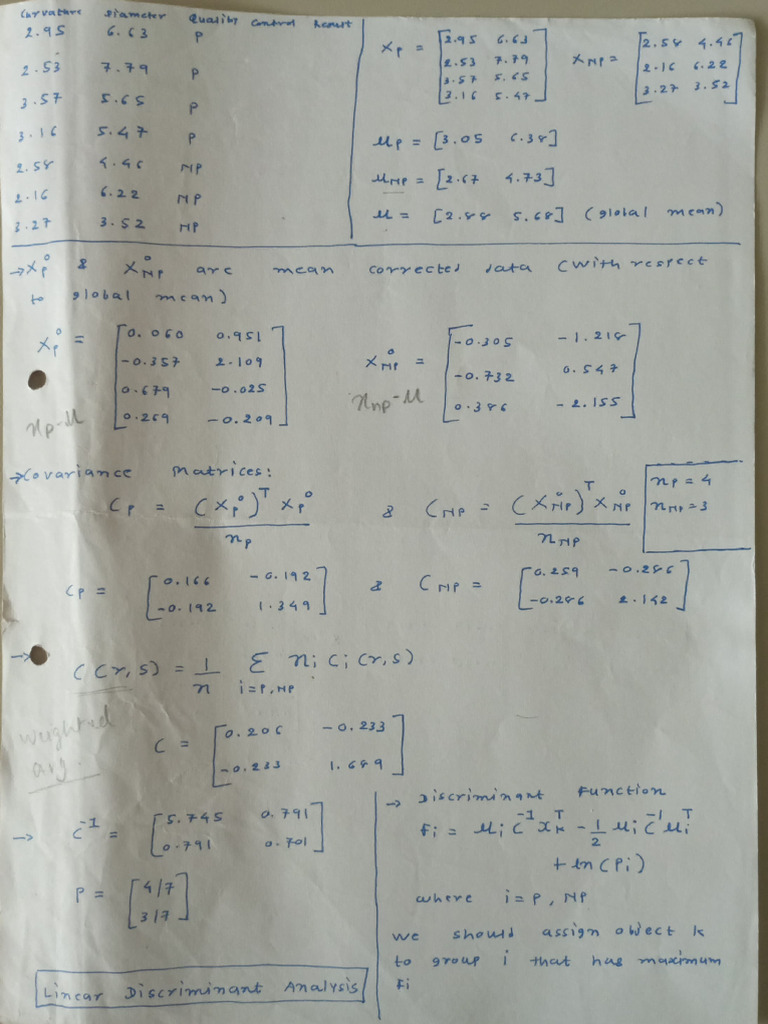 Curvature Diameter Quality Control Result
2.95 6.63 P
2.53 7.79 P
3.57 5.65 P
3.16 5.47 P
2.58 4.46 NP
2.16 6.22 NP
3.27 3.52 NP
X_P = [2.95 6.63
2.53 7.79
3.57 5.65
3.16 5.47]
X_NP = [2.58 4.46
2.16 6.22
3.27 3.52]
μ_P = [3.05 6.38]
μ_NP = [2.67 4.73]
μ = [2.88 5.68] (global mean)
→ X_P° & X_NP° are mean corrected data (with respect
to global mean)
X_P° = [0.060 0.951
-0.357 2.109
0.679 -0.025
0.269 -0.209]
x_P-μ
X_NP° = [-0.305 -1.218
-0.732 0.547
0.386 -2.155]
x_NP-μ
→ Covariance Matrices:
C_P = (X_P°)^T X_P° / n_P & C_NP = (X_NP°)^T X_NP° / n_NP
n_P = 4
n_NP = 3
C_P = [0.166 -0.192
-0.192 1.349]
& C_NP = [0.259 -0.286
-0.286 2.142]
→ C(r,s) = 1/n Σ_{i=P,NP} n_i C_i(r,s)
weighted
avg.
C = [0.206 -0.233
-0.233 1.689]
→ C^-1 = [5.745 0.791
0.791 0.701]
P = [4/7
3/7]
Linear Discriminant Analysis
→ Discriminant Function
F_i = μ_i C^-1 x_k^T - 1/2 μ_i C^-1 μ_i^T
+ ln(P_i)
where i = P, NP
we should assign object k
to group i that has maximum
F_i